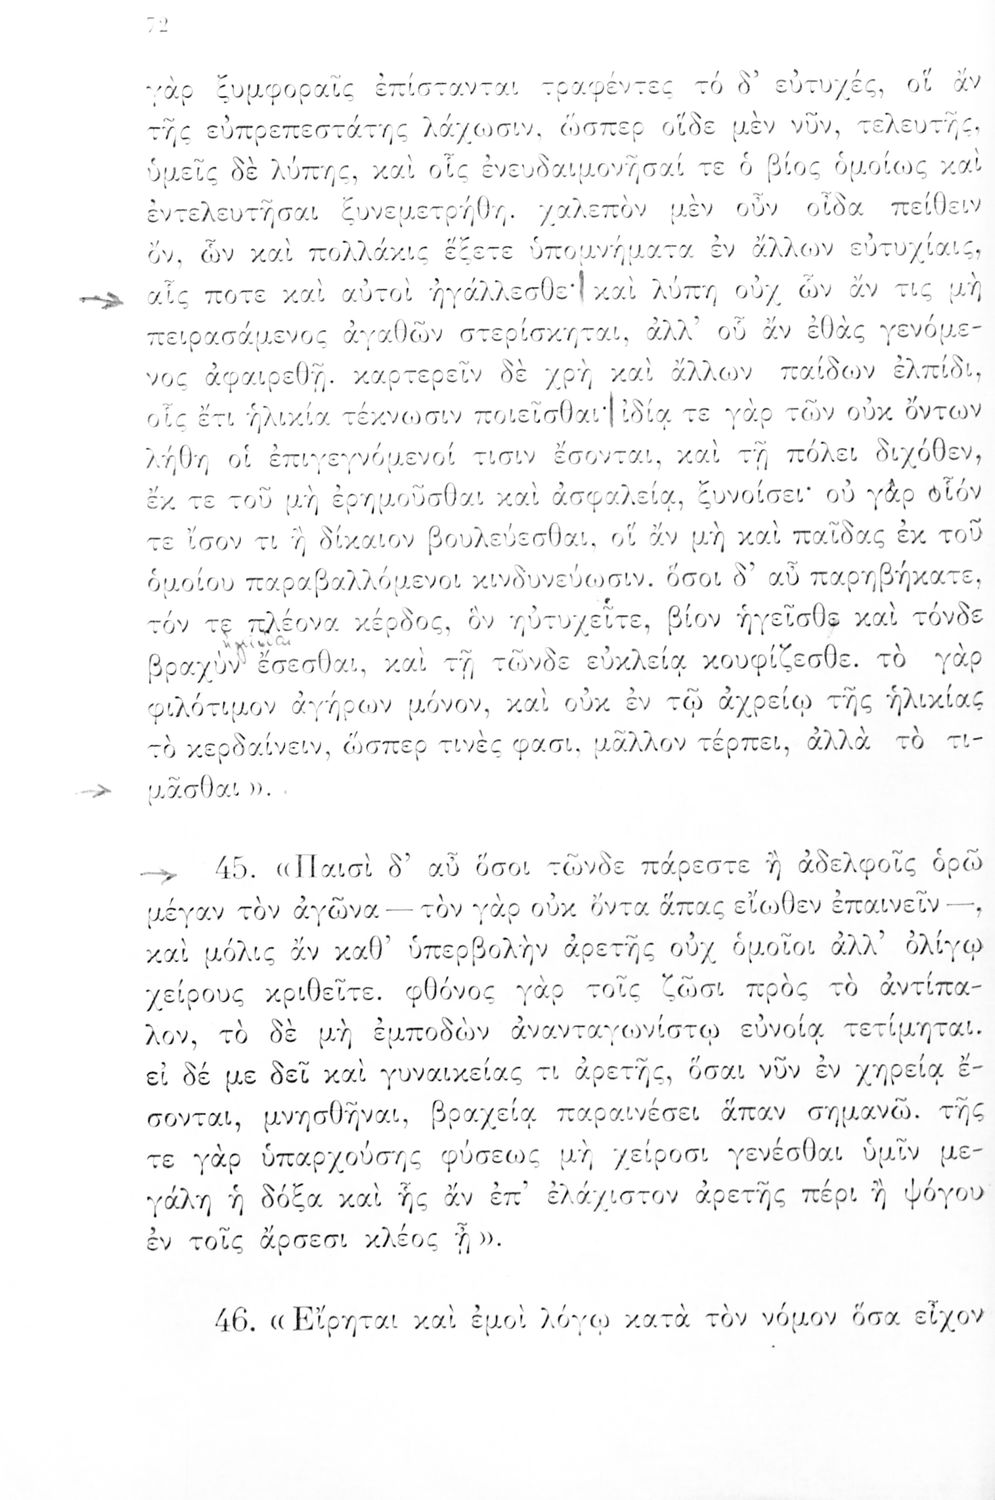 72
γὰρ ξυμφοραῖς ἐπίστανται τραφέντες τό δ’ εὐτυχές, οἳ ἂν
τῆς εὐπρεπεστάτης λάχωσιν, ὥσπερ οἵδε μὲν νῦν, τελευτῆς,
ὑμεῖς δὲ λύπης, καὶ οἷς ἐνευδαιμονῆσαί τε ὁ βίος ὁμοίως καὶ
ἐντελευτῆσαι ξυνεμετρήθη. χαλεπὸν μὲν οὖν οἶδα πείθειν
ὄν, ὧν καὶ πολλάκις ἕξετε ὑπομνήματα ἐν ἄλλων εὐτυχίαις,
αἷς ποτε καὶ αὐτοὶ ἠγάλλεσθε·| καὶ λύπη οὐχ ὧν ἄν τις μὴ
πειρασάμενος ἀγαθῶν στερίσκηται, ἀλλ’ οὗ ἂν ἐθὰς γενόμε-
νος ἀφαιρεθῇ. καρτερεῖν δὲ χρὴ καὶ ἄλλων παίδων ἐλπίδι,
οἷς ἔτι ἡλικία τέκνωσιν ποιεῖσθαι·| ἰδίᾳ τε γὰρ τῶν οὐκ ὄντων
λήθη οἱ ἐπιγεγνόμενοί τισιν ἔσονται, καὶ τῇ πόλει διχόθεν,
ἔκ τε τοῦ μὴ ἐρημοῦσθαι καὶ ἀσφαλείᾳ, ξυνοίσει· οὐ γὰρ οἷόν
τε ἴσον τι ἢ δίκαιον βουλεύεσθαι, οἳ ἂν μὴ καὶ παῖδας ἐκ τοῦ
ὁμοίου παραβαλλόμενοι κινδυνεύωσιν. ὅσοι δ’ αὖ παρηβήκατε,
τόν τε πλέονα κέρδος, ὃν ηὐτυχεῖτε, βίον ἡγεῖσθε καὶ τόνδε
βραχὺν ἔσεσθαι, καὶ τῇ τῶνδε εὐκλείᾳ κουφίζεσθε. τὸ γὰρ
φιλότιμον ἀγήρων μόνον, καὶ οὐκ ἐν τῷ ἀχρείῳ τῆς ἡλικίας
τὸ κερδαίνειν, ὥσπερ τινὲς φασι, μᾶλλον τέρπει, ἀλλὰ τὸ τι-
μᾶσθαι ».
45. «Παισὶ δ’ αὖ ὅσοι τῶνδε πάρεστε ἢ ἀδελφοῖς ὁρῶ
μέγαν τὸν ἀγῶνα — τὸν γὰρ οὐκ ὄντα ἅπας εἴωθεν ἐπαινεῖν —,
καὶ μόλις ἂν καθ’ ὑπερβολὴν ἀρετῆς οὐχ ὁμοῖοι ἀλλ’ ὀλίγῳ
χείρους κριθεῖτε. φθόνος γὰρ τοῖς ζῶσι πρὸς τὸ ἀντίπα-
λον, τὸ δὲ μὴ ἐμποδὼν ἀνανταγωνίστῳ εὐνοίᾳ τετίμηται.
εἰ δέ με δεῖ καὶ γυναικείας τι ἀρετῆς, ὅσαι νῦν ἐν χηρείᾳ ἔ-
σονται, μνησθῆναι, βραχείᾳ παραινέσει ἅπαν σημανῶ. τῆς
τε γὰρ ὑπαρχούσης φύσεως μὴ χείροσι γενέσθαι ὑμῖν με-
γάλη ἡ δόξα καὶ ἧς ἂν ἐπ’ ἐλάχιστον ἀρετῆς πέρι ἢ ψόγου
ἐν τοῖς ἄρσεσι κλέος ᾖ ».
46. « Εἴρηται καὶ ἐμοὶ λόγῳ κατὰ τὸν νόμον ὅσα εἶχον